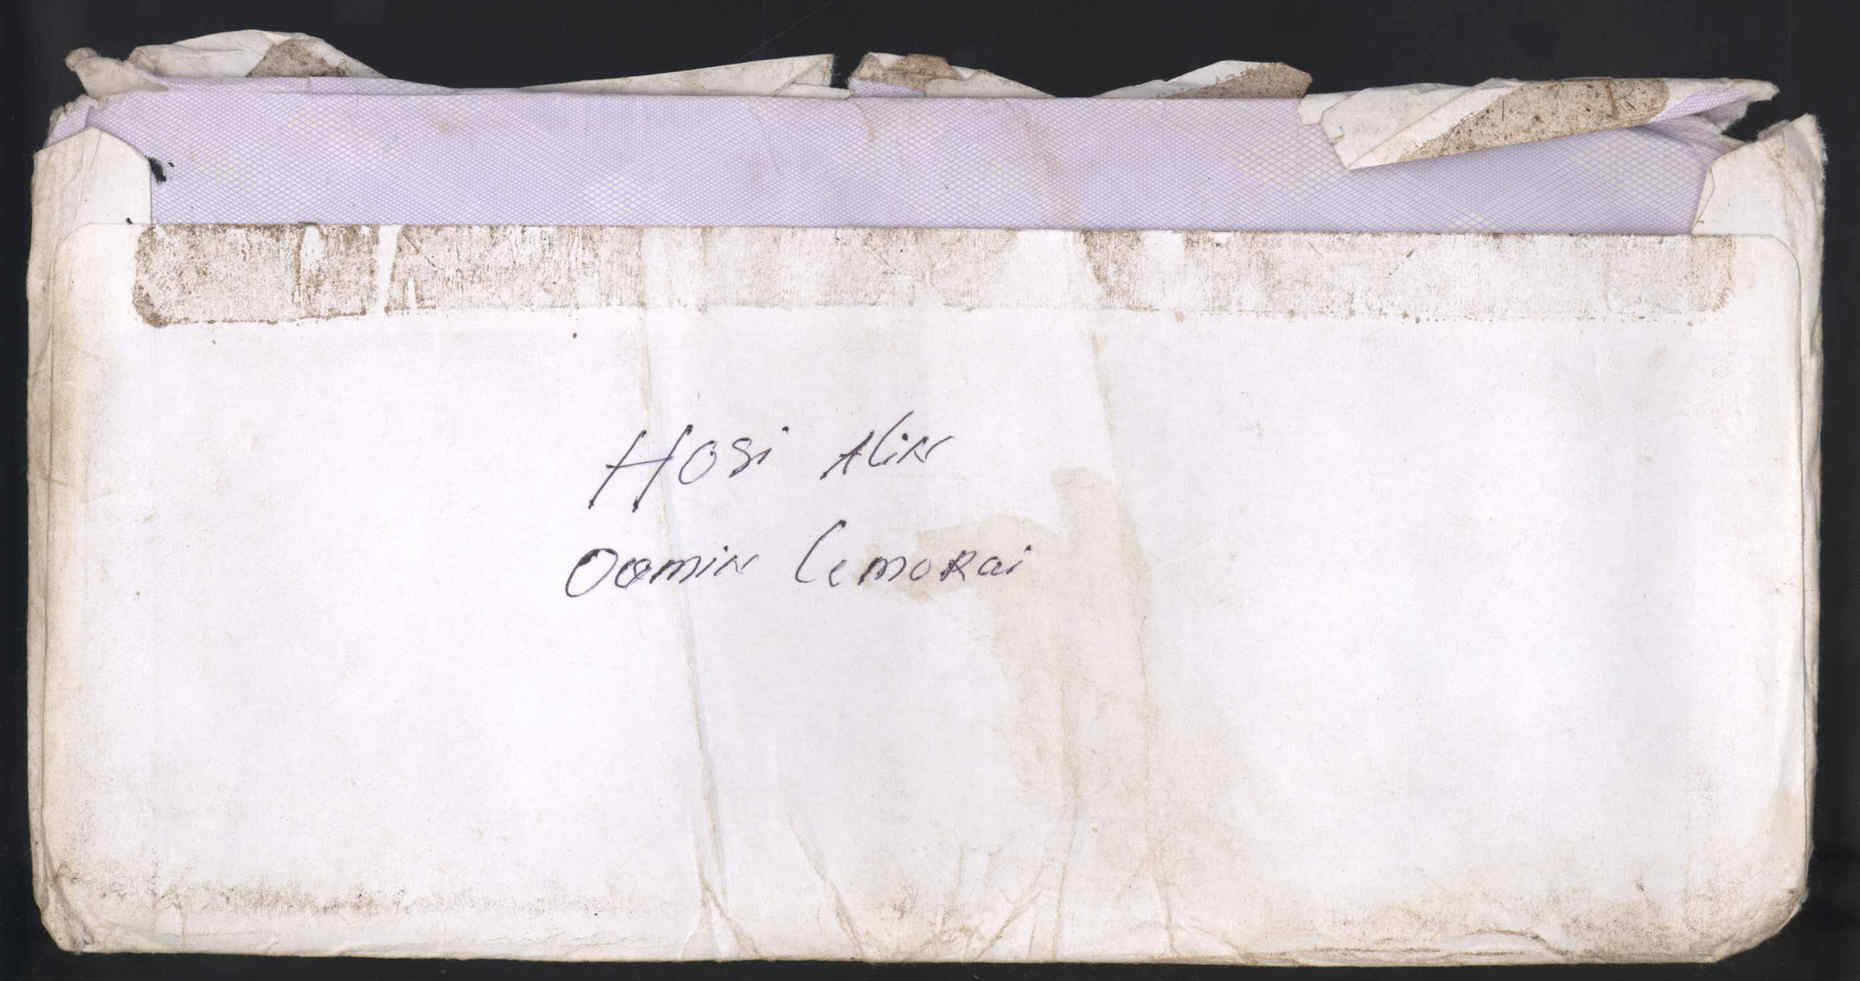 HOSi Alin
Oamin Cemorai